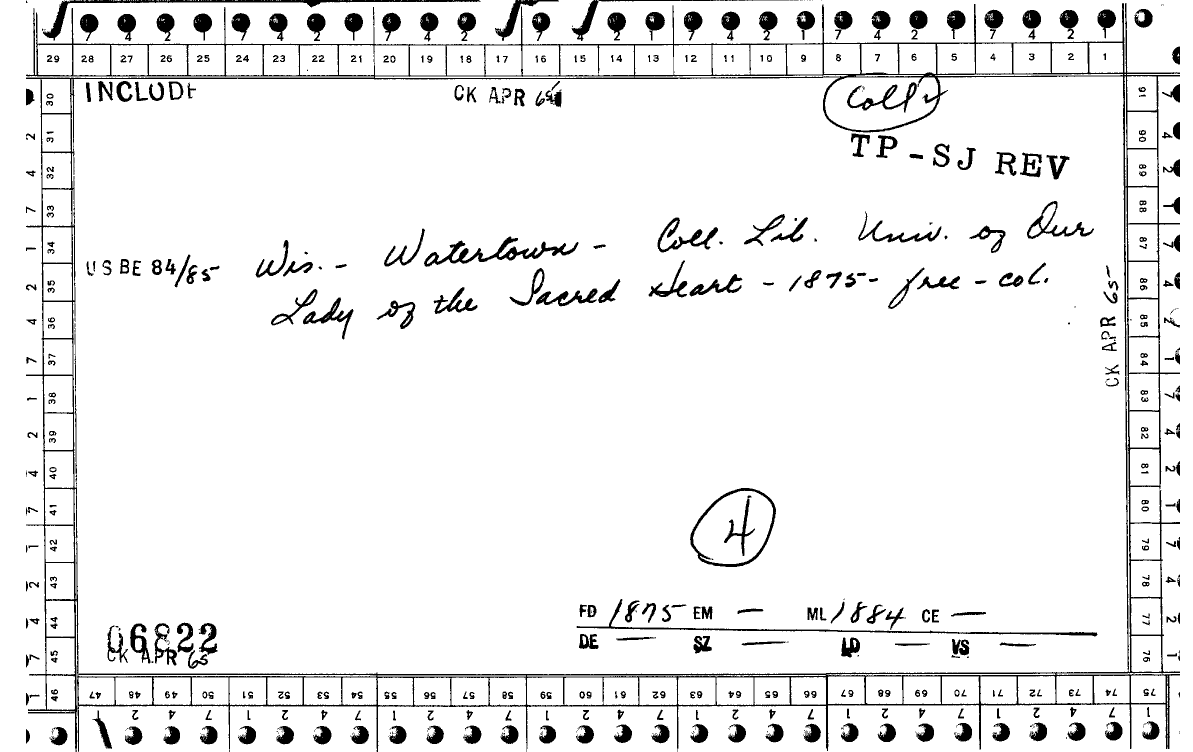 7 4 2 1 7 4 2 1 7 4 2 1 7 4 2 1 7 4 2 1 7 4 2 1 7 4 2 1
29 28 27 26 25 24 23 22 21 20 19 18 17 16 15 14 13 12 11 10 9 8 7 6 5 4 3 2 1
INCLUDE CK APR 65
TP - SJ REV
US BE 84/85 Wis. - Watertown - Coll. Lib. Univ. of Our
Lady of the Sacred Heart - 1875 - free - col.
CK APR 65
4
FD 1875 EM — ML 1884 CE —
DE — SZ — LD — VS —
06822
CK APR 65
30 31 32 33 34 35 36 37 38 39 40 41 42 43 44 45 46
2 4 7 1 2 4 7 1 2 4 7 1 2 4 7 1
91 90 89 88 87 86 85 84 83 82 81 80 79 78 77 76
47 48 49 50 51 52 53 54 55 56 57 58 59 60 61 62 63 64 65 66 67 68 69 70 71 72 73 74 75
1 2 4 7 1 2 4 7 1 2 4 7 1 2 4 7 1 2 4 7 1 2 4 7 1 2 4 7 1